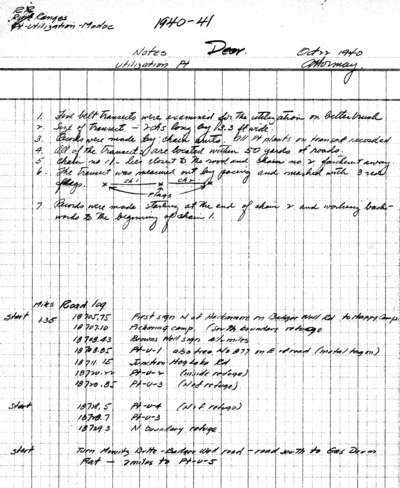 Deer Ranges
Pt-Utilization-Modoc
1940-41
Notes Deer. Oct 22 1940
Utilization Pt
1. Five belt transects were examined for the utilization on bitterbrush
2. Size of transect - 2 chs long by 13.3 ft wide
3. Records were made by chain units. All Pt plants on transect recorded
4. All of the transects are located within 50 yards of roads.
5. Chain no 1 lies closest to the road and chain no 2 farthest away
6. The transect was measured out by pacing and marked with 3 red
flags. ch 1 ch 2
Flags
7. Records were made starting at the end of chain 2 and working back-
wards to the beginning of chain 1.
Miles Road log
Start 135 18705.75 First sign N of Hackamore on Badger Well Rd to Happy Camp
18707.10 Pickering camp (South boundary refuge
18708.43 Browns Well sign
18708.85 Pt-U-1 also tree No 877 on E of road (metal tag on)
1871 .15 Junction Hog Lake Rd
18720.22 Pt-U-2 (inside refuge)
18720.85 Pt-U-3 (N of refuge)
Start 18728.5 Pt-U-4 (N of refuge)
18728.7 Pt-U-3
18729.3 N boundary refuge
Start Turn Mowitz Butte - Badger Well road - road south to Gas Drum
Flat - 2 miles to Pt-U-5